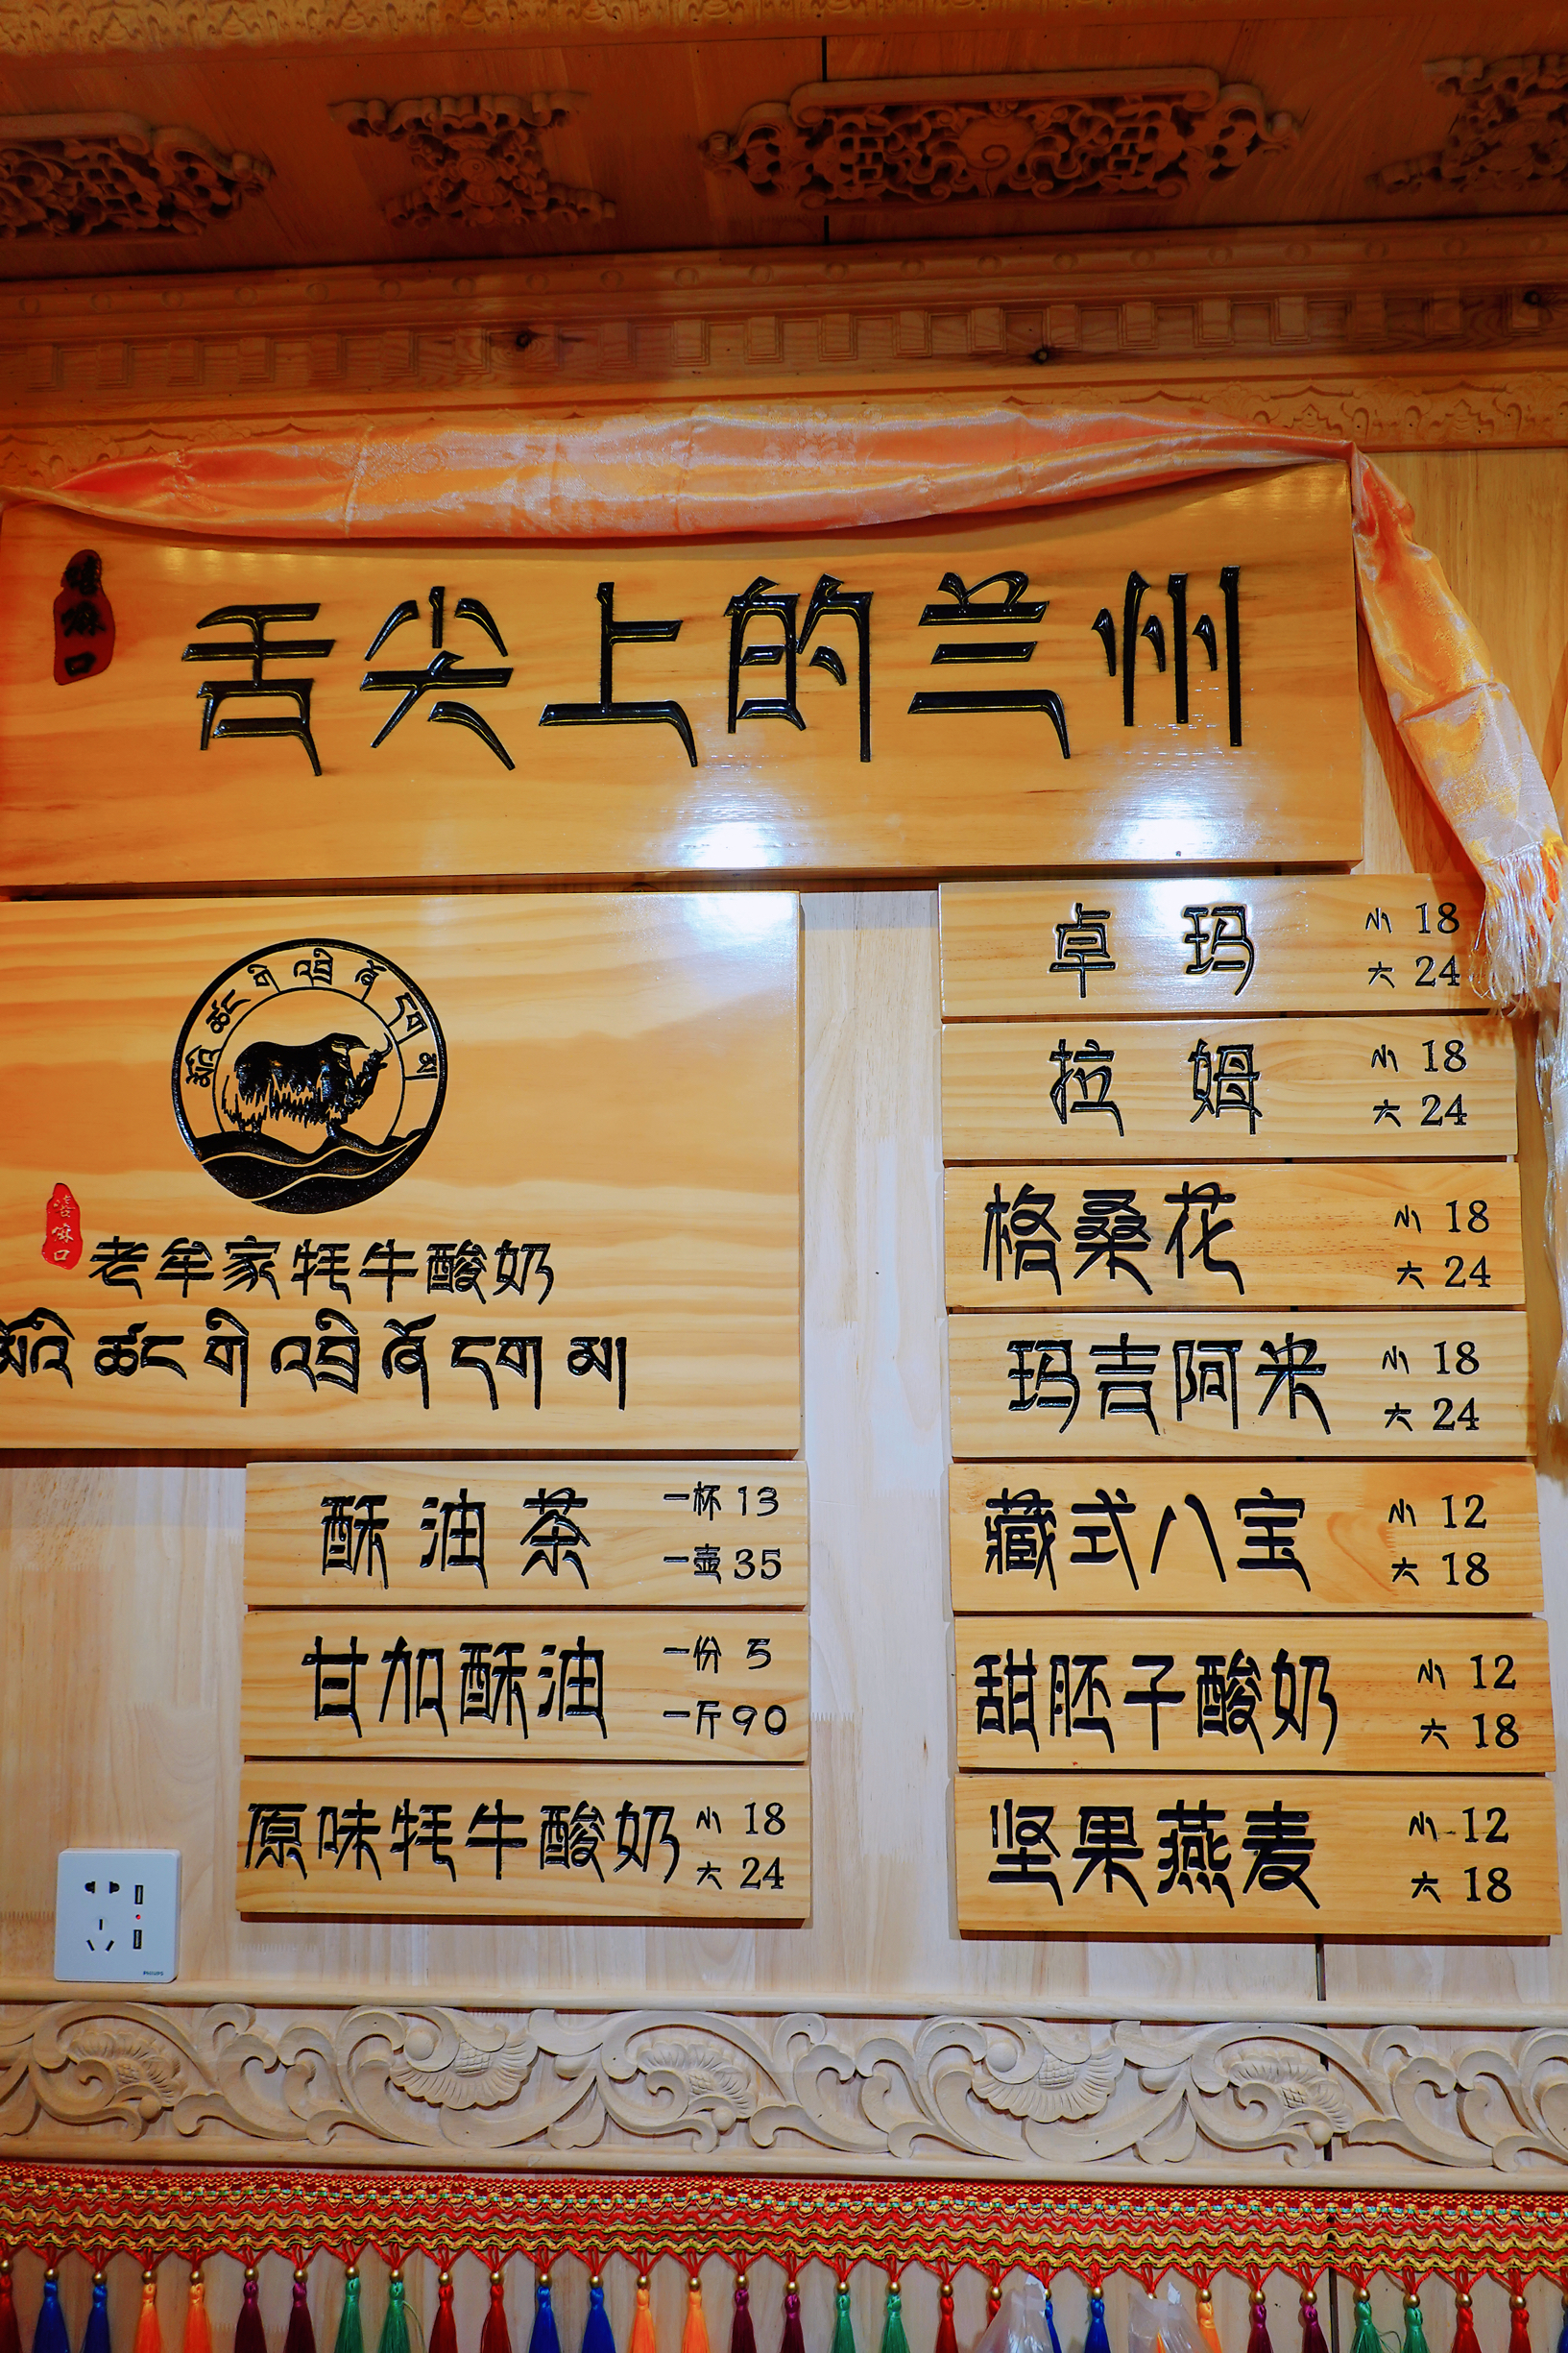 嘻麻口
舌尖上的兰州
མོའི་ཚང་གི་འབྲི་ཞོ་དཀ་མ།
嘻麻口
老牟家牦牛酸奶
མོའི་ཚང་གི་འབྲི་ཞོ་དཀ་མ།
酥油茶 一杯 13
一壶 35
甘加酥油 一份 5
一斤 90
原味牦牛酸奶 小 18
大 24
卓玛 小 18
大 24
拉姆 小 18
大 24
格桑花 小 18
大 24
玛吉阿米 小 18
大 24
藏式八宝 小 12
大 18
甜胚子酸奶 小 12
大 18
坚果燕麦 小 12
大 18
PHILIPS